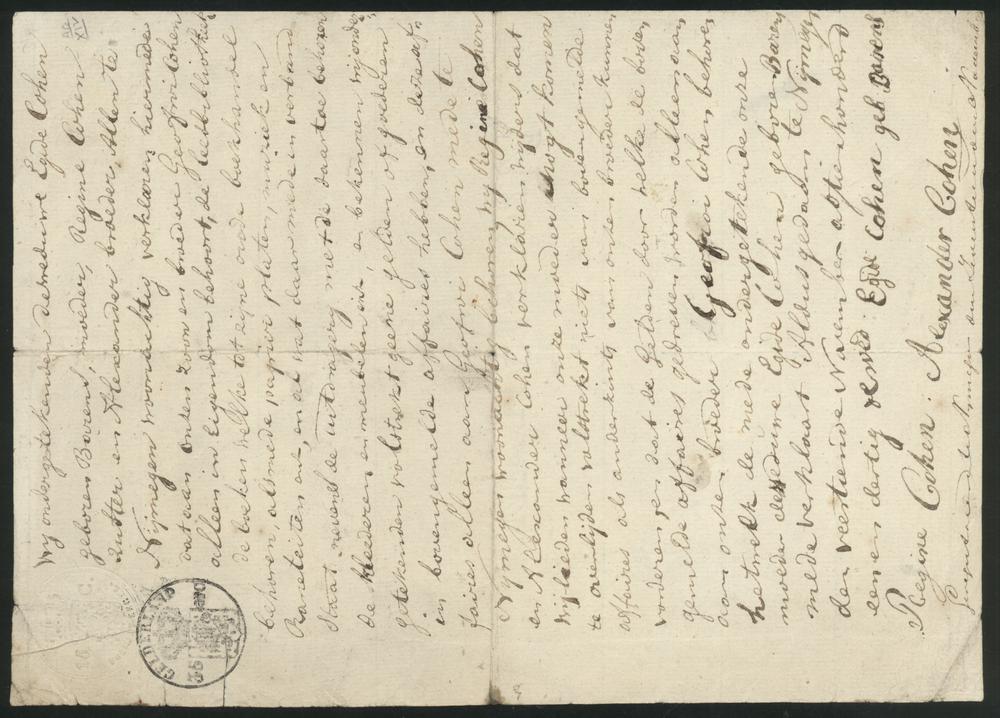 Wij ondergetekenden de weduwe Egde Cohen
geboren Barens, moeder, Regine Cohen
Zuster en Alexander broeder, Allen te
Nijmegen woonachtig verklaren hiermede
dat aan onzen zoon en broeder Geofroi Cohen
alleen in eigendom behoort, de leesbibliotheek
de boeken welke tot zijne oude boekhandel
behoren, alsmede papier platen, muzieken
Rariteiten enz, en al wat daarmede in verband
staat nevens de uitdraging met de daartoe behoren
de kleederen en meubelen enz, en bekennen wij onder
getekenden volstrekt geene gelden of goederen
in bovengemelde affaires hebben, en deze af
faires alleen aan Geofroi Cohen mede te
Nijmegen woonachtig behoren, wij Regine Cohen
en Alexander Cohen verklaren wijders dat
wijlieden wanneer onze moeder mogt komen
te overlijden volstrekt niets van bovengemelde
affaires als anderzints van onzen broeder kunnen
vorderen, en dat de gelden door welke de boven
gemelde affaires gedreven worden alleen aan
aan onzen broeder Geofroi Cohen behoren
hetwelk de mede ondergetekende onze
moeder de weduwe Egde Cohen geboren Barens
mede verklaart Aldus gedaan te Nijmegen
den veertiende November agttienhonderd
een en dertig
wed: Egde Cohen geb Barens
Regine Cohen. Alexander Cohen
GELDERLAND
35
15 C.
AG
XV